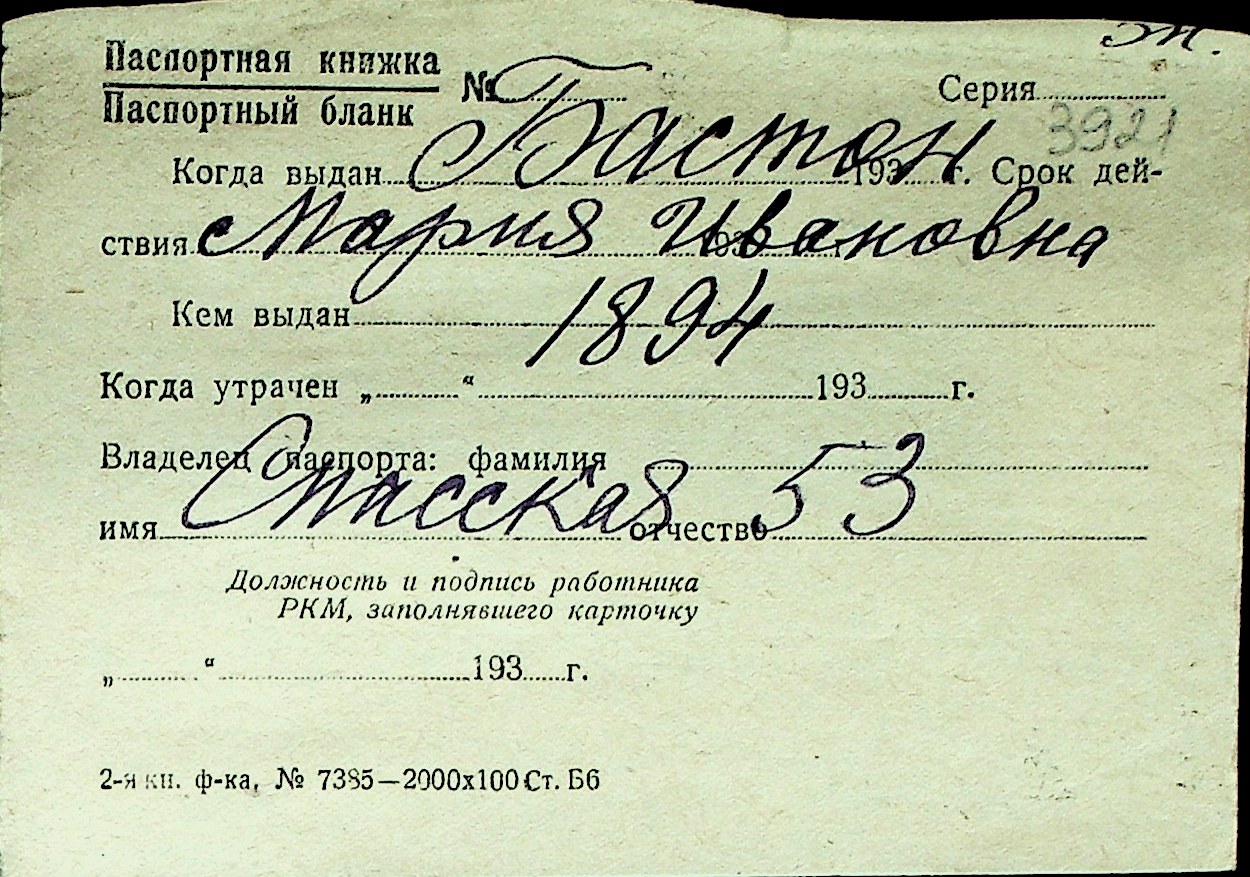 Зп.
Паспортная книжка
Паспортный бланк
№ Серия
3921
Бастон
Когда выдан 193 г. Срок дей-
ствия 193 г.
Мария Ивановна
Кем выдан
1894
Когда утрачен „ “ 193 г.
Владелец паспорта: фамилия
Спасская 53
имя отчество
Должность и подпись работника
РКМ, заполнявшего карточку
„ “ 193 г.
2-я кн. ф-ка. № 7385—2000х100 Ст. Б6